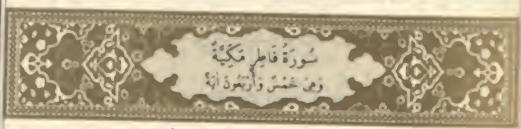 سُورَةُ فَاطِرٍ مَكِّيَّةٌ
وَهِىَ خَمْسٌ وَأَرْبَعُونَ اٰيَةً